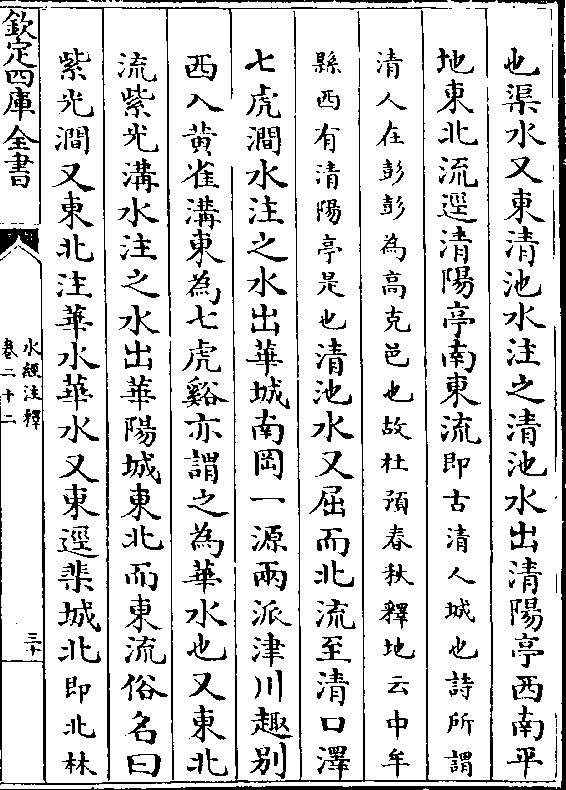 也渠水又東清池水注之清池水出清陽亭西南平
地東北流逕清陽亭南東流即古清人城也詩所謂
清人在彭彭為高克邑也故杜預春秋釋地云中牟
縣西有清陽亭是也清池水又屈而北流至清口澤
七虎澗水注之水出華城南岡一源兩派津川趣别
西入黄雀溝東為七虎谿亦謂之為華水也又東北
流紫光溝水注之水出華陽城東北而東流俗名曰
紫光澗又東北注華水華水又東逕棐城北即北林
欽定四庫全書
水經注釋
卷二十二
三十